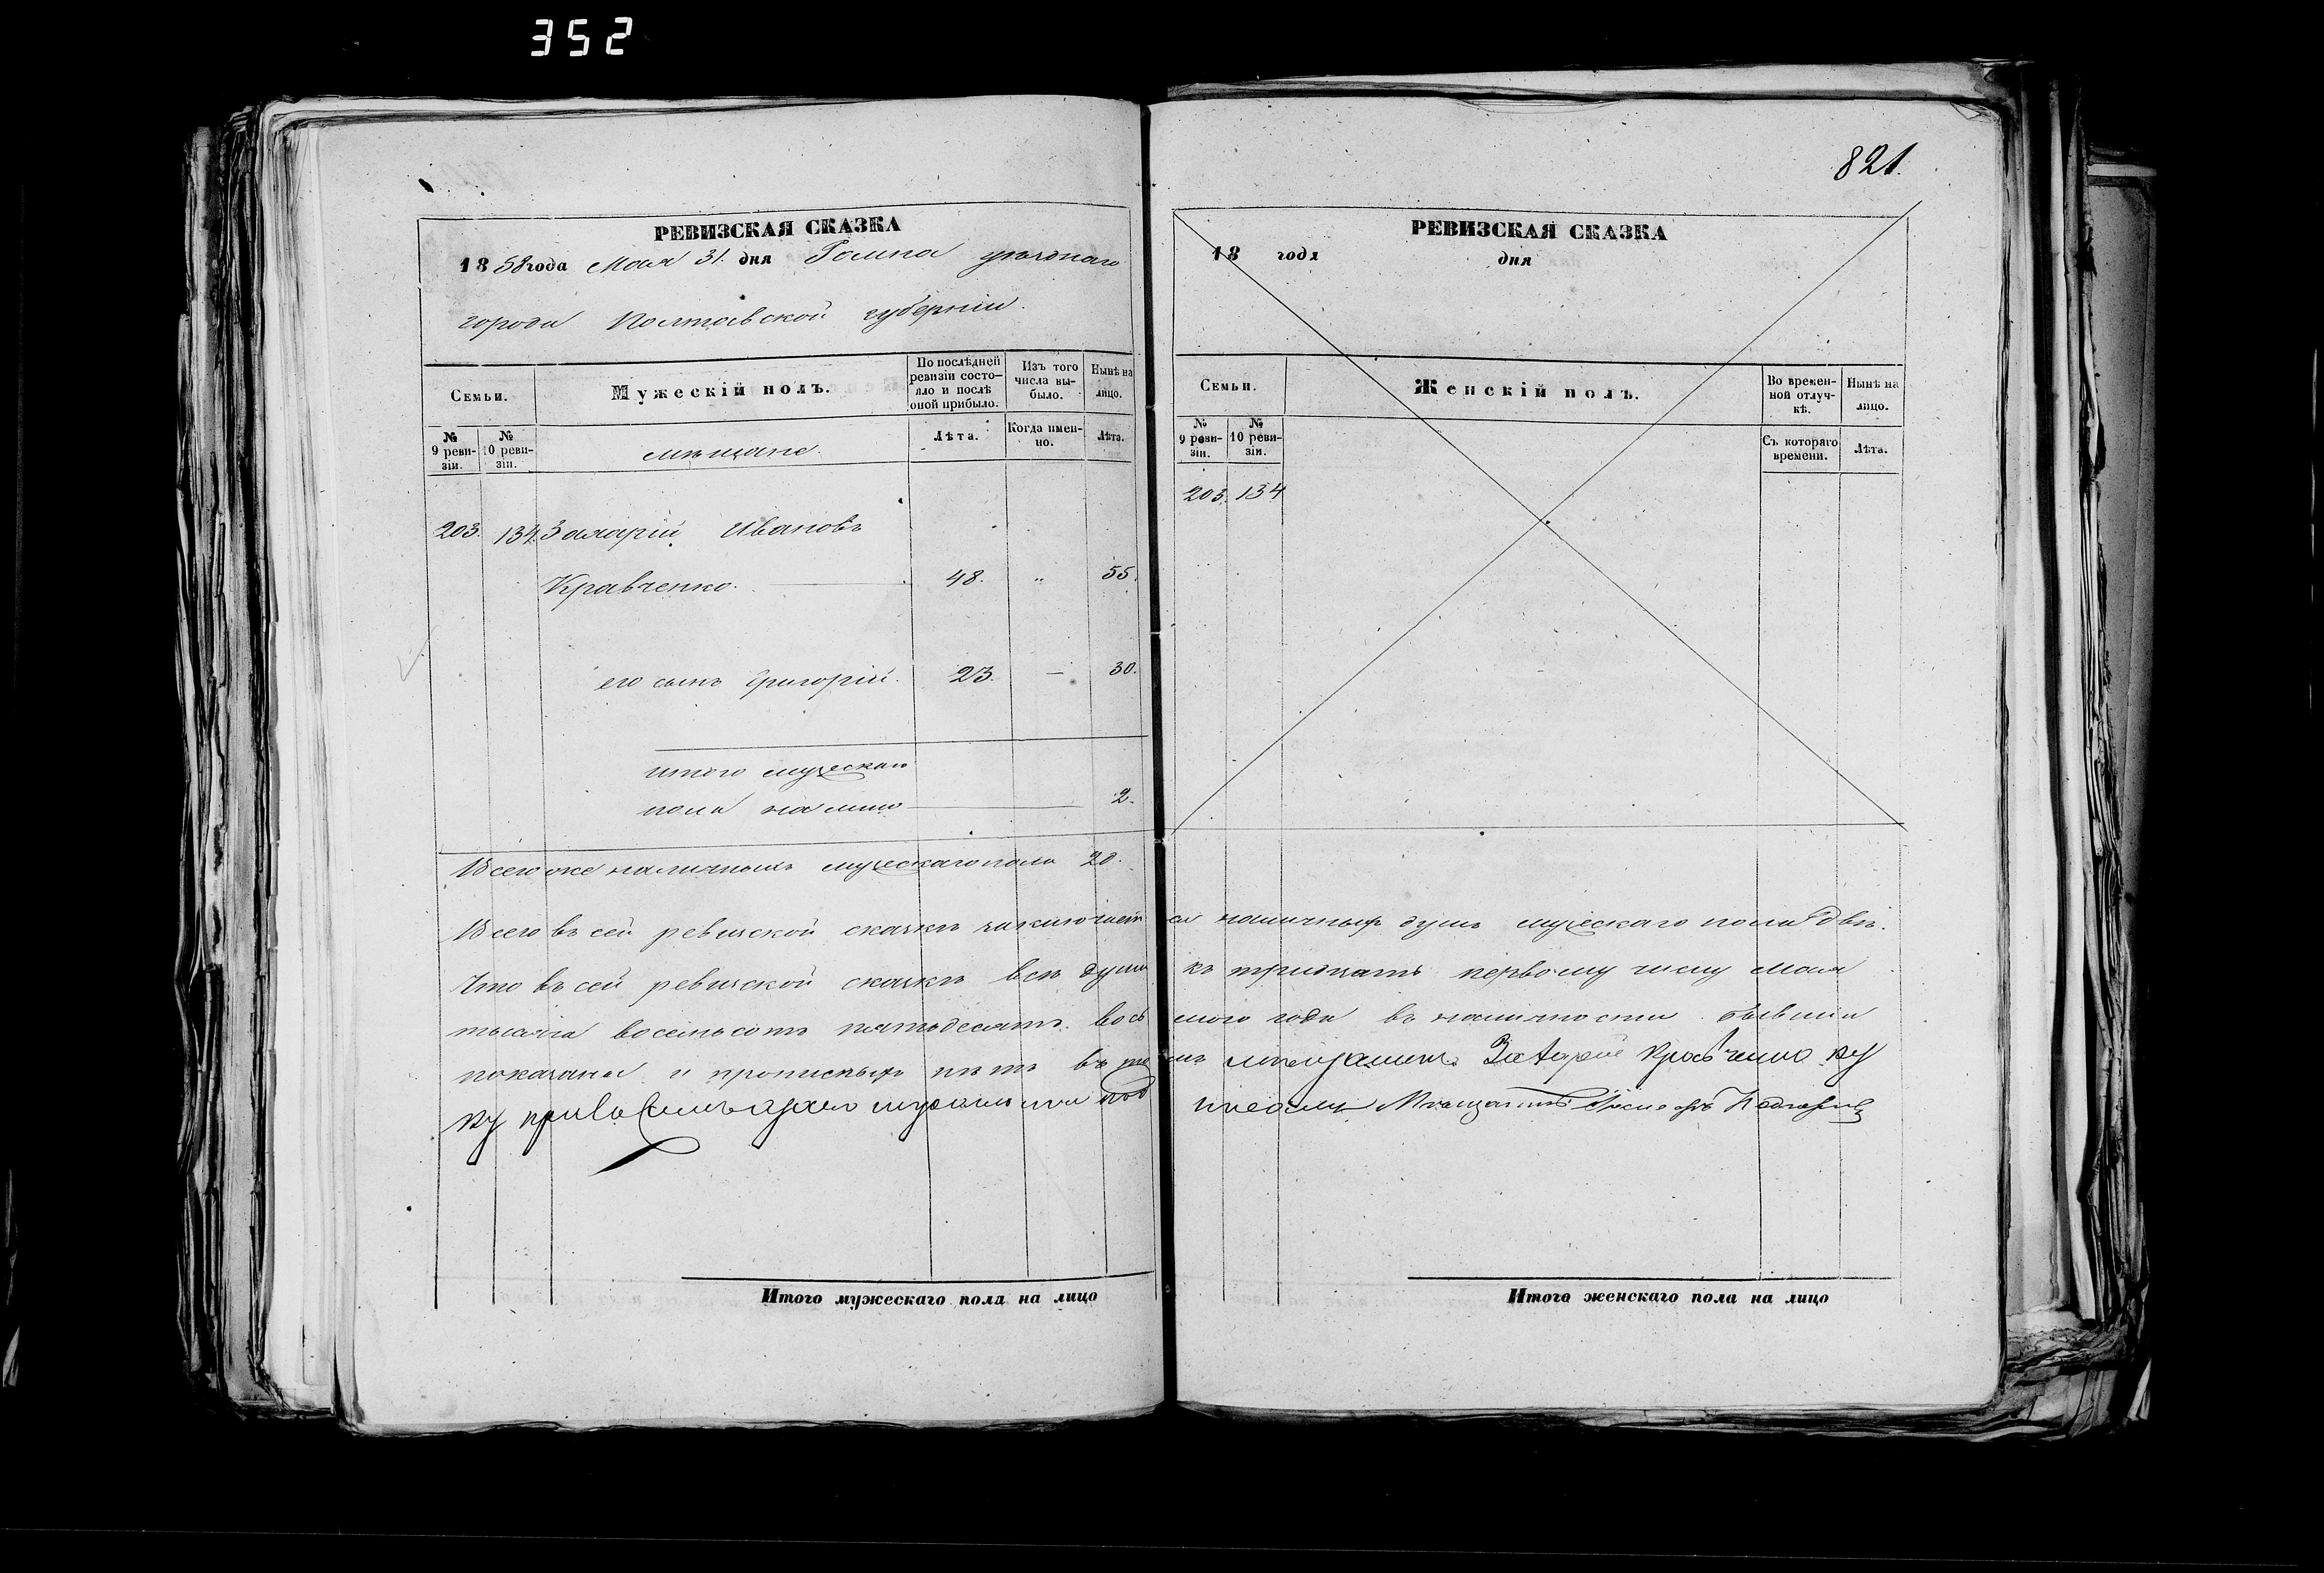 352
821.
РЕВИЗСКАЯ СКАЗКА
1858 года Мая 31. дня Ромна уѣзднаго
города Полтавской губерніи.
Семьи.
Мужескій полъ.
По послѣдней ревизіи состояло и послѣ оной прибыло.
Изъ того числа выбыло.
Нынѣ на лицо.
№ 9 ревизіи.
№ 10 ревизіи.
мѣщане.
Лѣта.
Когда именно.
Лѣта.
203. 134. Захарій Ивановъ
Кравченко. 48. „ 55.
его сынъ Григорій. 23. — 30.
итого мужескаго
пола на лицо 2.
Всего же наличныхъ мужескаго пола 2д.
РЕВИЗСКАЯ СКАЗКА
18 года дня
Семьи.
Женскій полъ.
Во временной отлучкѣ.
Нынѣ на лицо.
№ 9 ревизіи.
№ 10 ревизіи.
Съ котораго времени.
Лѣта.
203. 134
Всего въ сей ревизской сказкѣ заключается наличныхъ душъ мужескаго пола двѣ.
Что въ сей ревизской сказкѣ всѣ души къ тридцать первому числу Мая
тысяча восемьсотъ пятьдесятъ восьмого года въ наличности бывшии
показаны и прописныхъ нѣтъ въ томъ мѣщанинъ Захарій Кравченко ру
ку приложилъ а за него под Мѣщанинъ
Итого мужескаго пола на лицо
Итого женскаго пола на лицо